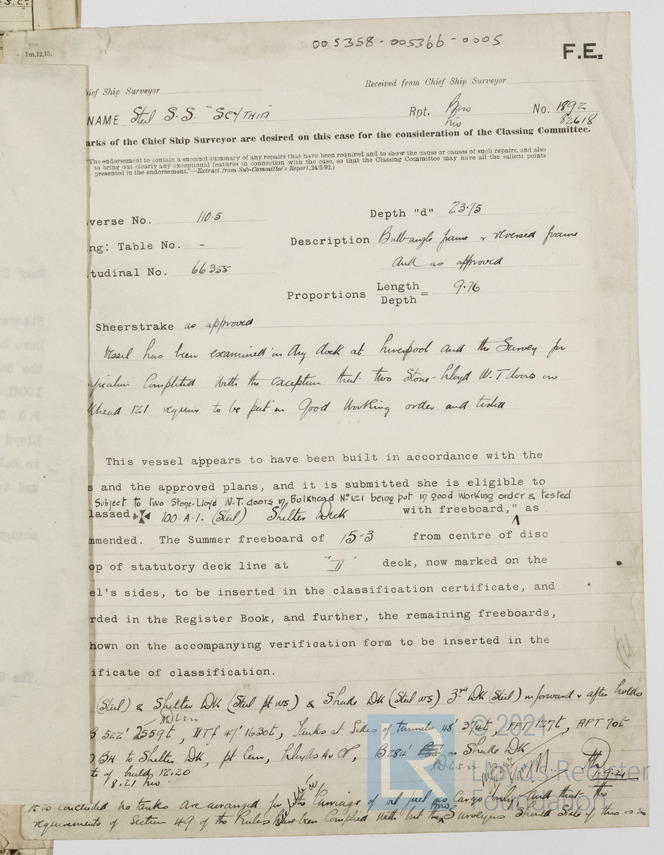 005358-005366-0005
F.E.
1m,12,15.
hief Ship Surveyor
Received from Chief Ship Surveyor
NAME Steel S.S. "SCYTHIA"
Rpt. No. 1892
82618
arks of the Chief Ship Surveyor are desired on this case for the consideration of the Classing Committee.
"The endorsement to contain a succinct summary of any repairs that have been required and to show the cause or causes of such repairs, and also
to bring out clearly any exceptional features in connection with the case, so that the Classing Committee may have all the salient points
presented in the endorsement."—Extract from Sub-Committee's Report,
verse No. 110.5
Depth "d" 23.75
ng: Table No. -
Description Bulb angle frame & reversed frame
and as approved
tudinal No. 66355
Proportions Length
Depth = 9.76
Sheerstrake as approved
Vessel has been examined in dry dock at Liverpool and the Survey for
ification Completed with the exception that two Stone-Lloyd W.T doors in
khead 121 require to be put in Good Working order and tested
This vessel appears to have been built in accordance with the
s and the approved plans, and it is submitted she is eligible to
Subject to two Stone-Lloyd W.T. doors in Bulkhead No 121 being put in good working order & tested
lassed ✠ 100.A.1. (Steel) Shelter Deck with freeboard," as
mmended. The Summer freeboard of 15-3 from centre of disc
op of statutory deck line at "D" deck, now marked on the
el's sides, to be inserted in the classification certificate, and
rded in the Register Book, and further, the remaining freeboards,
hown on the accompanying verification form to be inserted in the
ificate of classification.
(Steel) & Shelter Dk (Steel pt ws) & Shade Dk (Steel ws) 3rd Dk (Steel) in forward & after holds
522' 2559t, 47' 1630t, Tanks at Sides of tunnels 48' 374t, APT 70t
BH to Shelter Dk, pt Cem, Shade Dk
te of build 12.20
8.21
It is concluded no tanks are arranged for the Carriage of oil fuel as Cargo only and that the
requirements of Section 49 of the Rules have been complied with but the Surveyors should state if this is so
© 2021
Lloyd's Register
Foundation